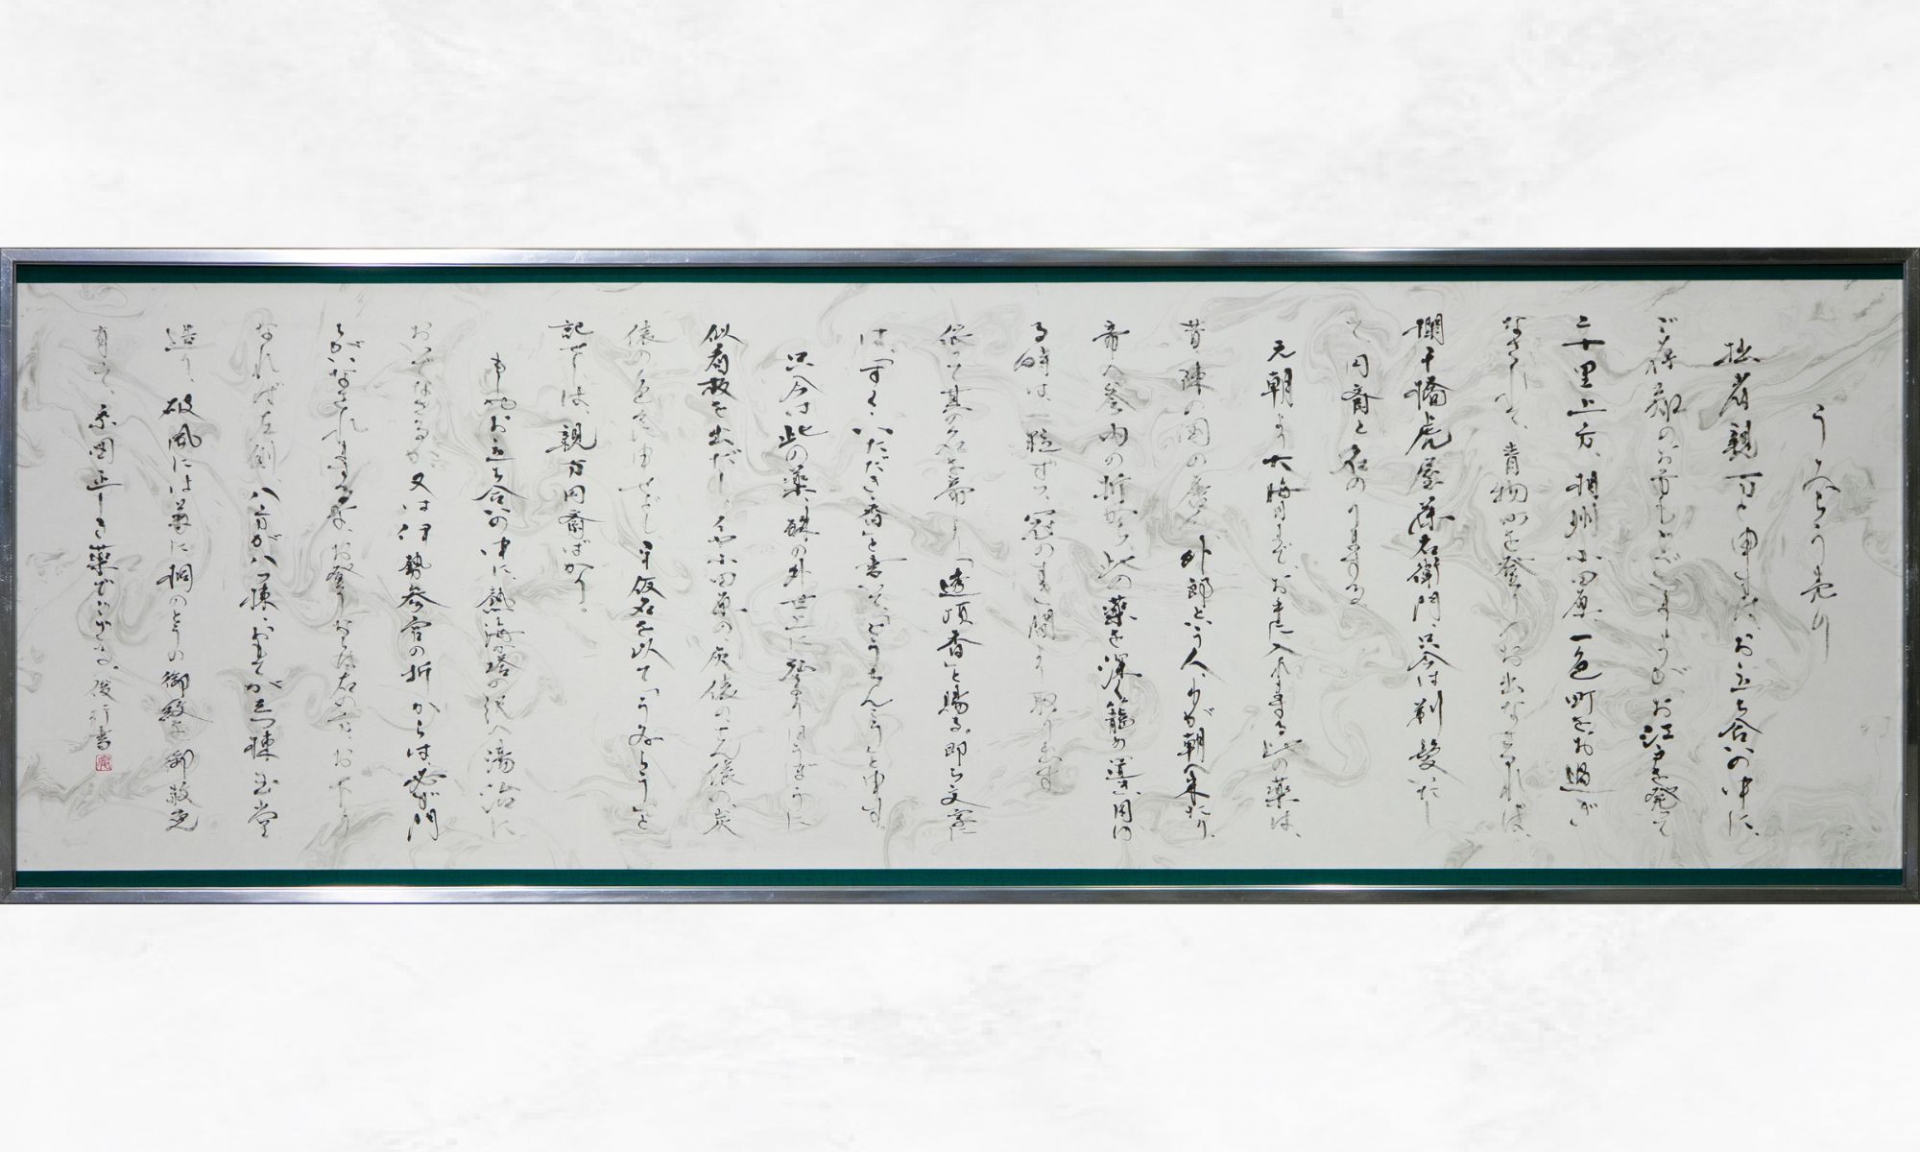 ういらう売り
拙者親方と申すは、お立ち合いの中に、
ご存知のお方もござりましょうが、お江戸を発って
二十里上方、相州小田原、一色町をお過ぎ
なされて、青物町を登りへお出なさるれば、
欄干橋虎屋藤右衛門、只今は剃髪致し
て、円斎と名のりまする
元朝より大晦日まで、お手に入れまする此の薬は、
昔、陳の国の唐人、外郎という人、わが朝へ来たり、
帝へ参内の折から、此の薬を深く籠め置き、用ゆ
る時は、一粒ずつ、冠のすき間より取り出す
依って其の名を帝より「透頂香」と賜る、即ち文字に
は、「すく、いただき、香」と書いて「とうちんこう」と申す
只今は此の薬、殊の外世上に弘まり、ほうぼうに
似看板を出だし、イヤ小田原の、灰俵の、さん俵の、炭
俵のと色々に申せども、平仮名を以て「ういろう」と
記せしは、親方円斎ばかり、
もしやお立ち合の中に、熱海か塔の沢へ湯治に
おいでなさるるか、又は伊勢参宮の折からは必ず門
ちがいなされまするな、お登りならば右の方、お下り
なれば左側、八方が八つ棟、おもてが三つ棟玉堂
造り、破風には菊に桐のとうの御紋を御赦免
有って、系図正しき薬でござる、俊行書